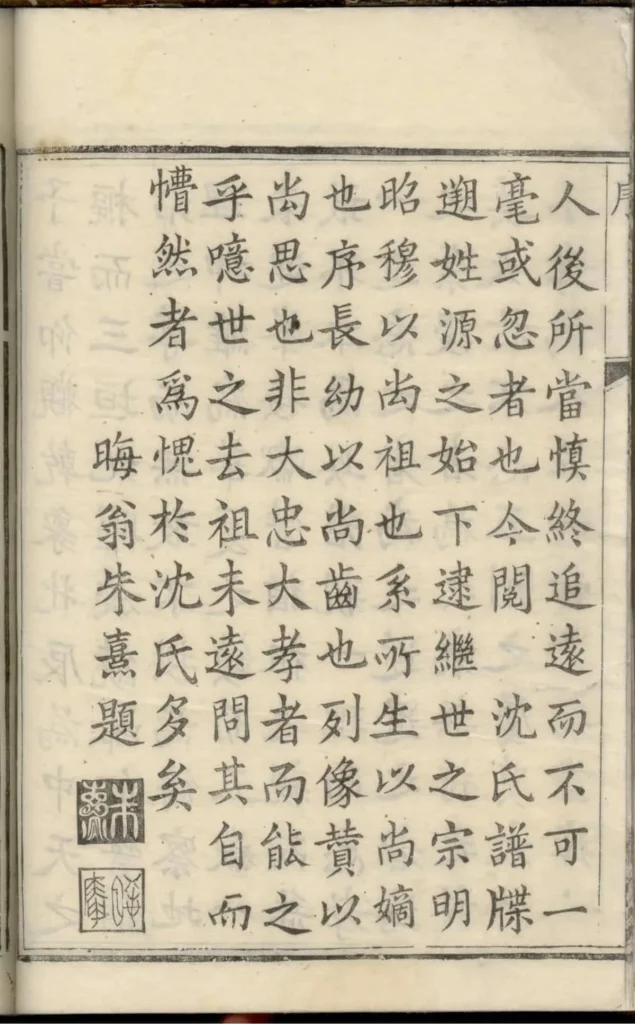 序
人後所當慎終追遠而不可一
毫或忽者也今閱 沈氏譜牒
遡姓源之始下逮繼世之宗明
昭穆以尚祖也系所生以尚嫡
也序長幼以尚齒也列像贊以
尚思也非大忠大孝者而能之
乎噫世之去祖未遠問其自而
懵然者爲愧於沈氏多矣
晦翁朱熹題
朱熹